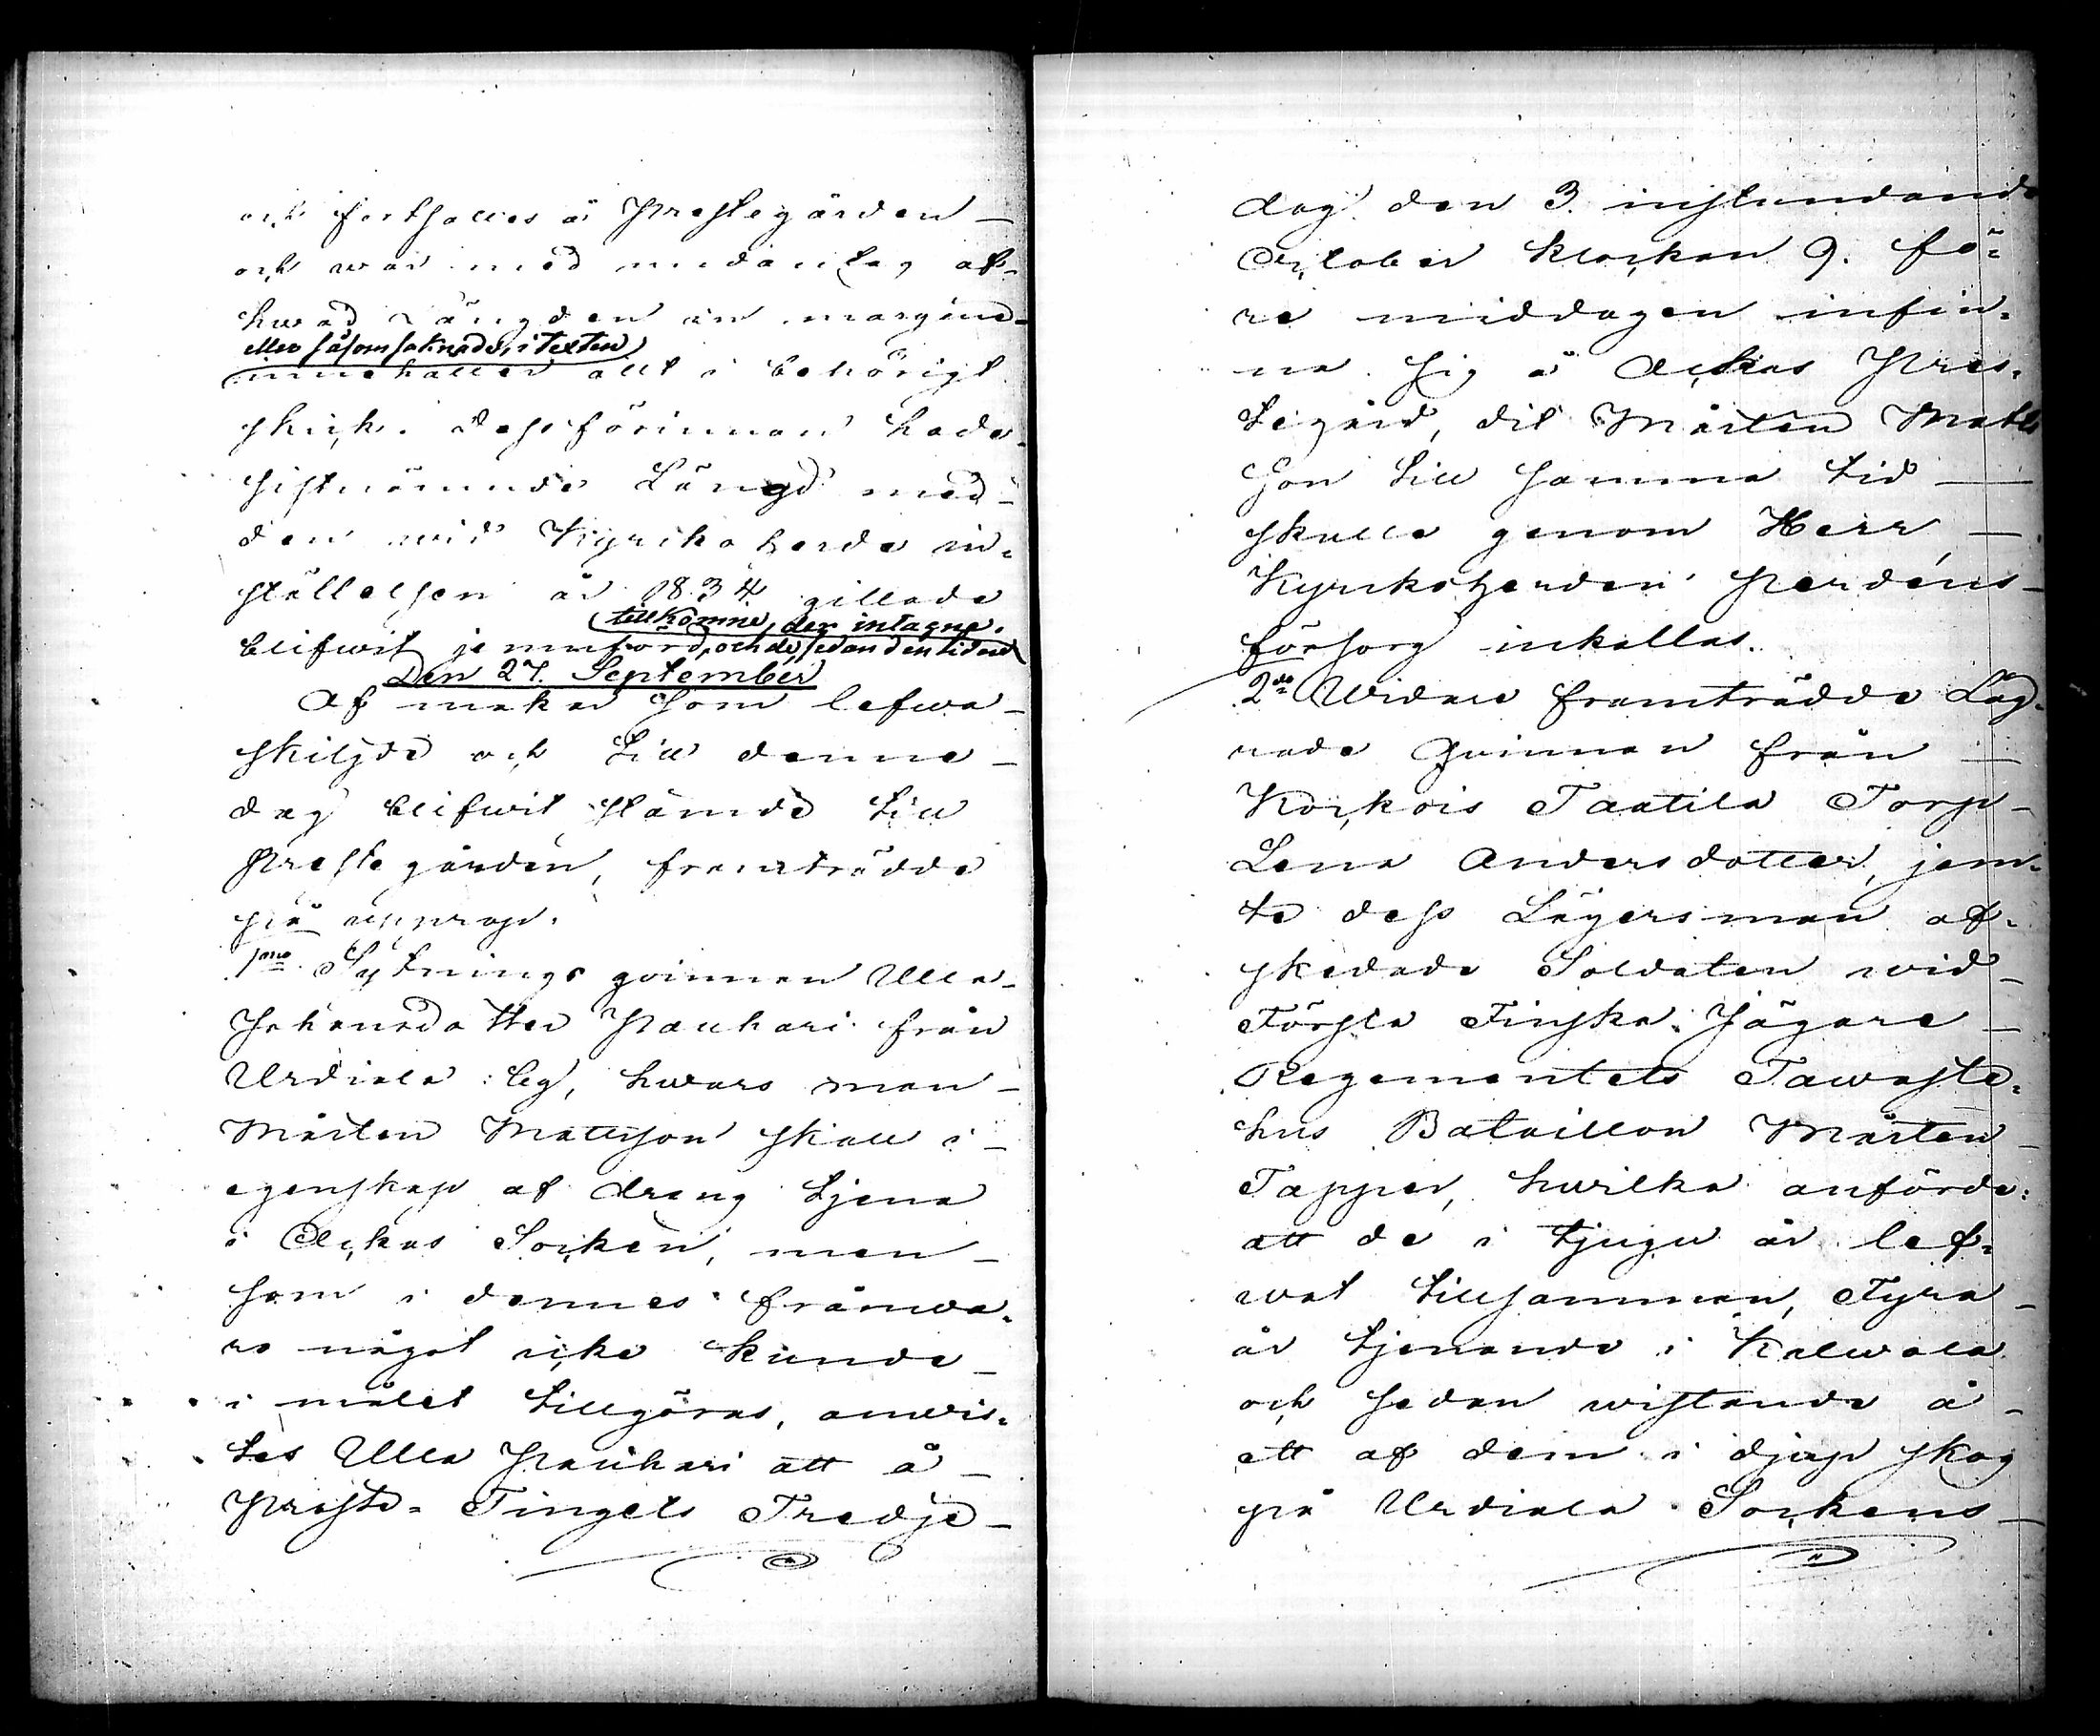 och forthålles å Prestegården –
och war med undantag af
hwad Längden in margine
eller såsom saknade i texten
innehåller allt i behörigt
skick. Dessförinnan hade
sistnämnde Längd med
den wid Kyrkoherde in-
ställelsen år 1834 gillade
tillkomne, der intagne.
blifwit jemnförd, och de, sedan den tiden
Den 27. September
Af makar som lefwa –
skiljde och till denne –
dag blifwit stämde till
Prestegården, framträdde
på upprop.
1mo Sytnings qvinnan Ulla –
Johansdotter Pauhari från
Urdiala by, hwars man –
Mårten Mattsson skall i –
egenskap af dreng tjena
i Ackas Socken, men –
som i dennes frånwa-
ro något icke kunde –
i målet tillgöras, anwis-
tes Ulla Pauhari att å –
Preste-Tingets Tredje –
dag den 3. instundande
October klockan 9. fö-
re middagen infin-
na sig å Ackas Pres-
tegård, dit Mårten Matts
son till samma tid –
skulle genom Herr –
Kyrkoherden Perdéns –
försorg inkallas.
2do Widare framträdde Läg-
rade Qvinnan från –
Korkois Taatila Torp –
Lena Andersdotter, jem-
te dess Lägersman af-
skedade Soldaten wid –
Förste Finska Jägare –
Regementets Tawaste-
hus Bataillon Mårten –
Tapper, hwilka anförde:
att de i tjugu år lef-
wat tillsamman, Fyra –
år tjenande i Kalwola
och sedan wistande å –
ett af dem i djup skog
på Urdiala Sockens –